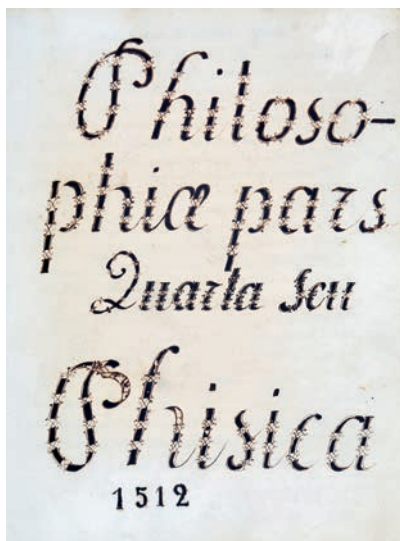 Philoso-
phiæ pars
Quarta seu
Phisica
1512